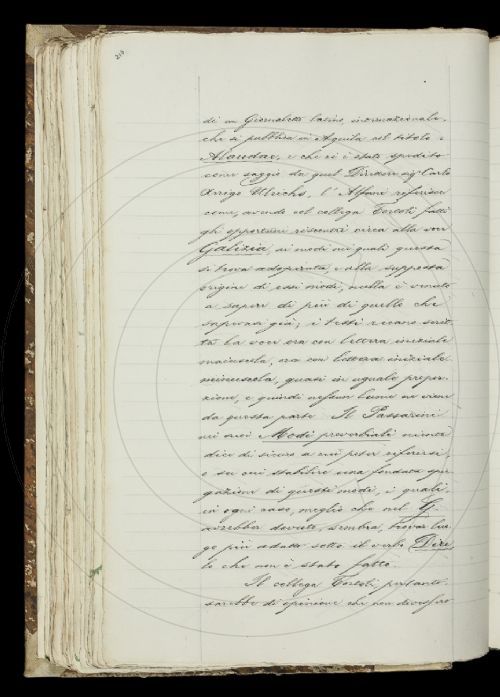 di un Giornaletto latino, internazionale,
che si pubblica in Aquila col titolo:
Alaudae, e che ci è stato spedito
come saggio da quel Direttore sigr. Carlo
Arrigo Ulrichs, l'Alfani riferisce
come, avendo col collega Tortoli fatti
gli opportuni riscontri circa alla voce
Galizia, ai modi nei quali questa
si trova adoperata, e alla supposta
origine di essi modi, nulla è venuto
a sapere di più di quello che
sapevasi già; i testi recano scrit-
ta la voce ora con lettera iniziale
maiuscola, ora con lettera iniziale
minuscola, quasi in uguale propor-
zione, e quindi nessun lume ne viene
da questa parte. Il Passarini
nei suoi Modi proverbiali niente
dice di sicuro a cui poter riferirsi,
e su cui stabilire una fondata spie-
gazione di questi modi, i quali,
in ogni caso, meglio che nel G.
avrebber dovuto, sembra, trovar luo-
go più adatto sotto il verbo Dire,
lo che non è stato fatto.
Il collega Tortoli pertanto
sarebbe di opinione che non dovessero